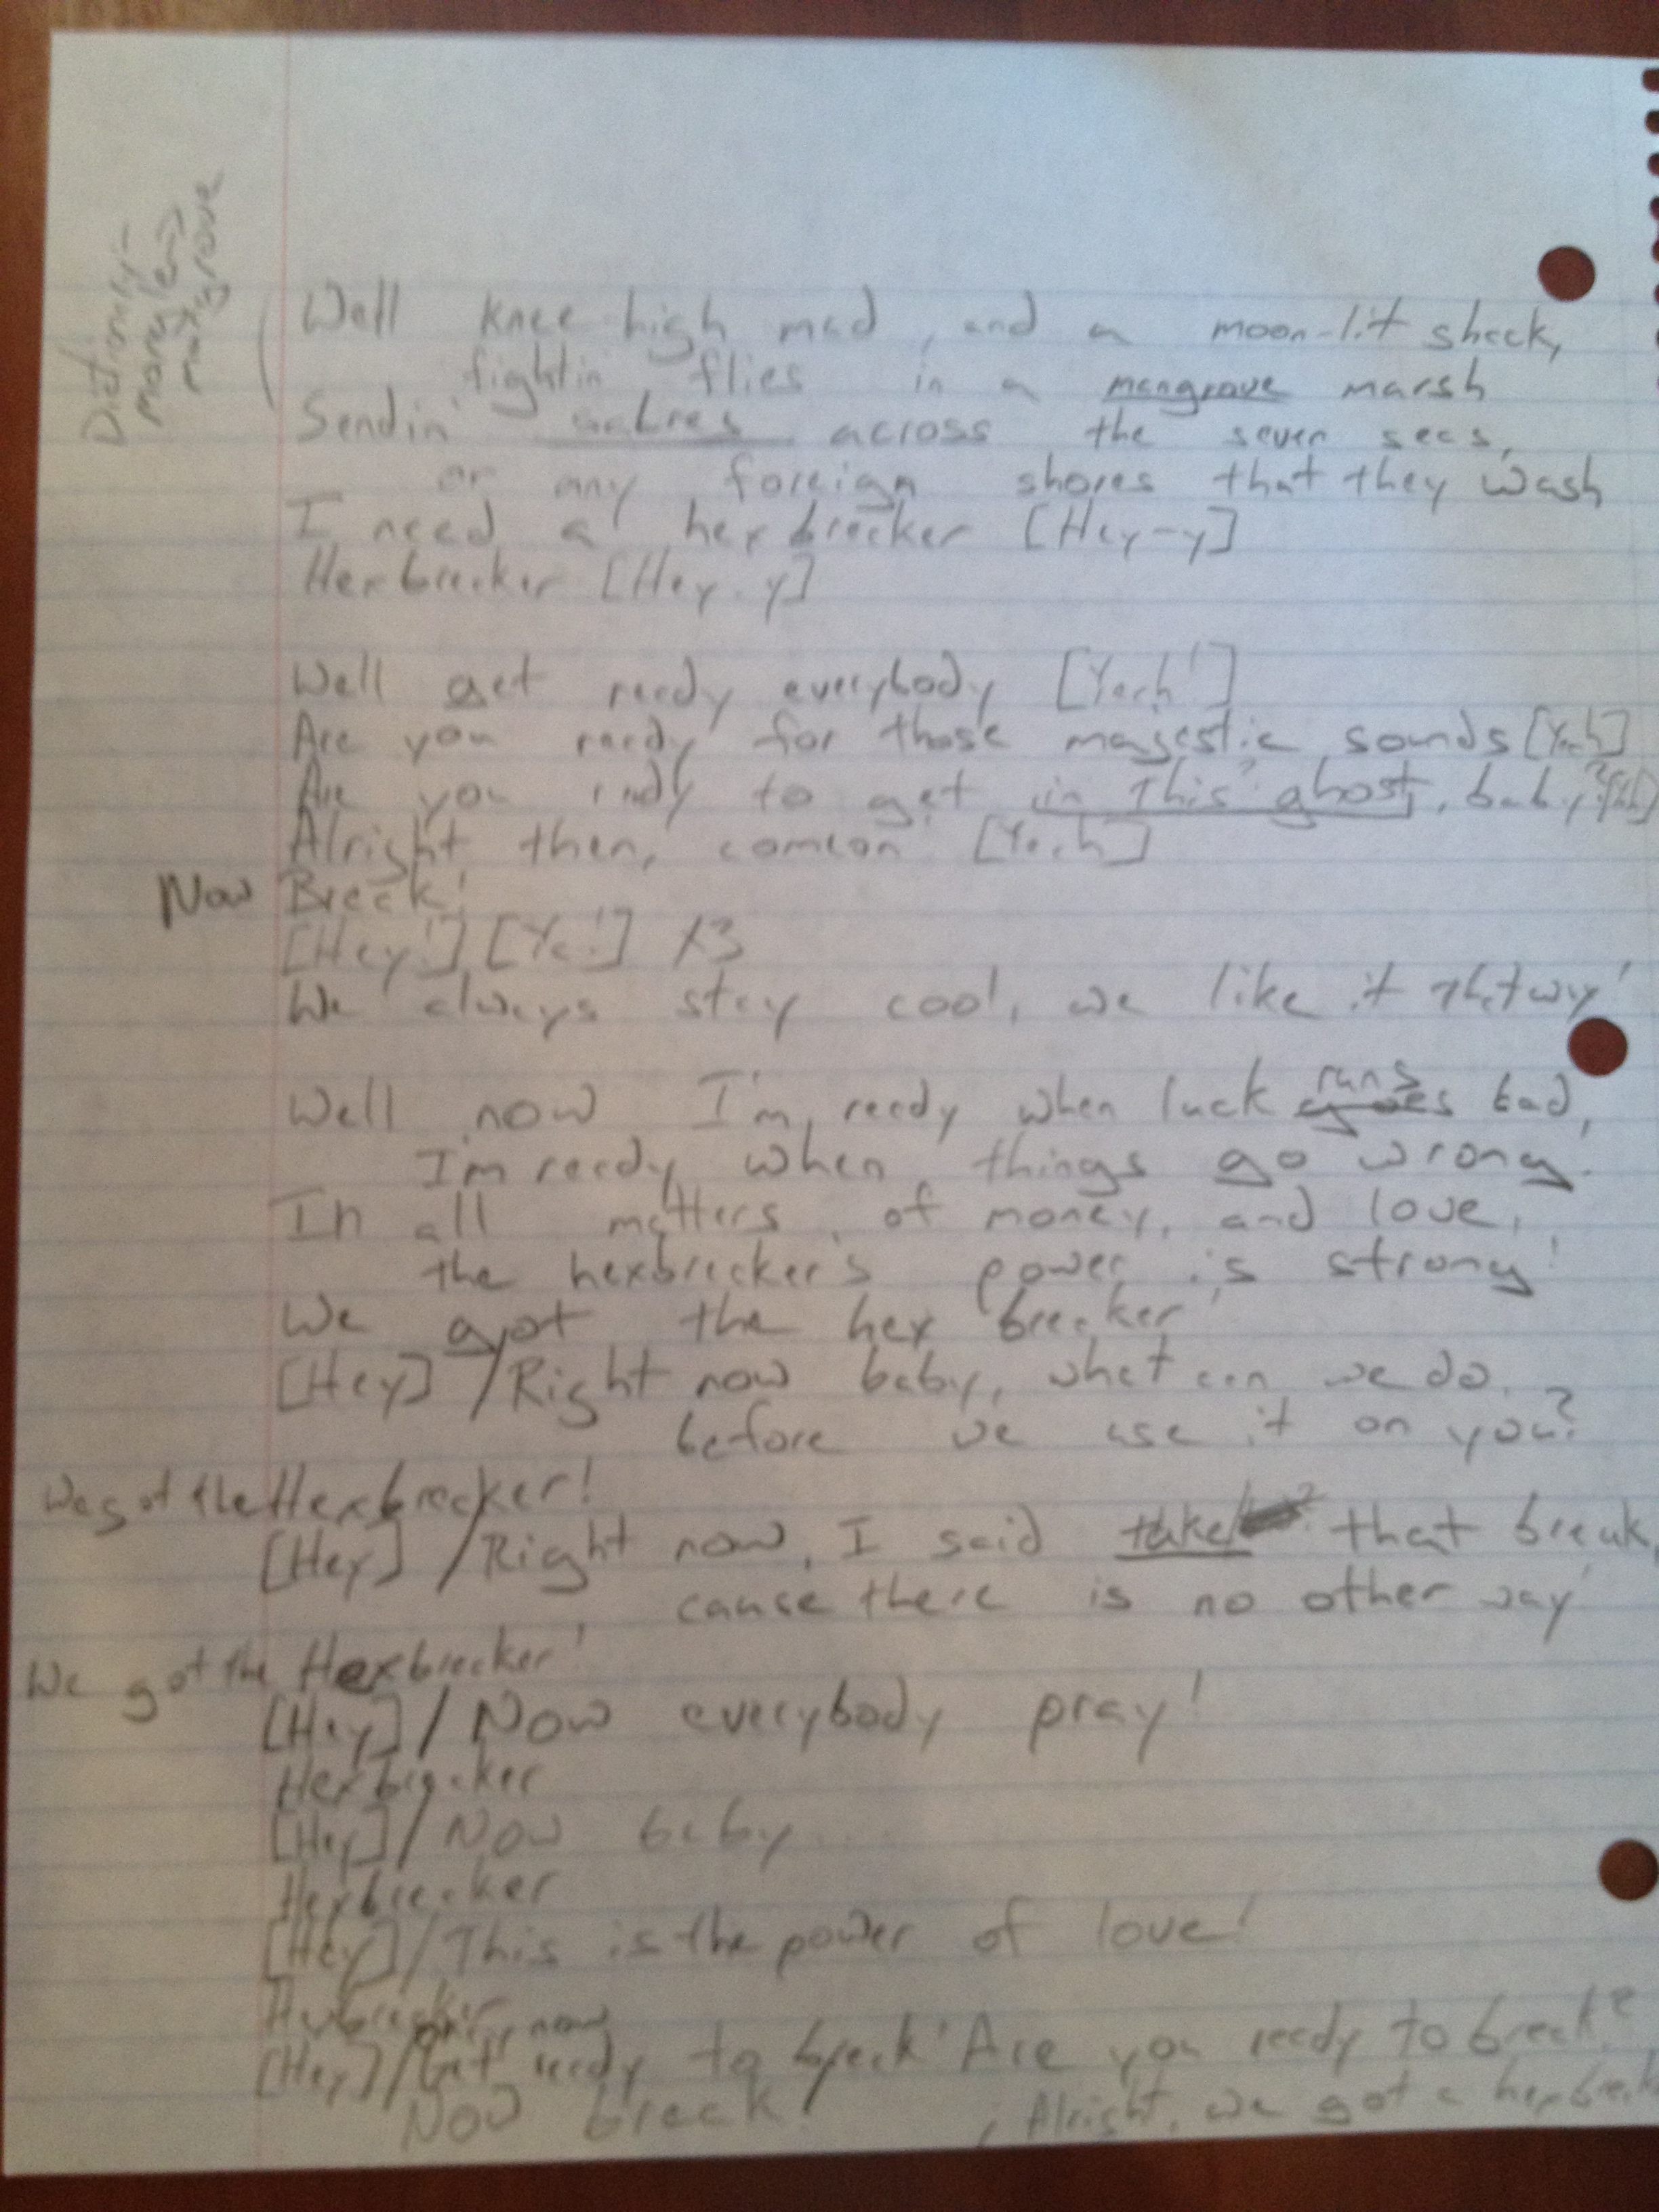 Dictionary-
mangrove
Well knee high mud, and a moon-lit shack,
fightin' flies in a mangrove marsh
Sendin' across the seven seas,
or any foreign shores that they wash
I need a hexbreaker [Hey-y]
Hexbreaker [Hey-y]
Well get ready everybody [Yeah!]
Are you ready for those majestic sounds [Yeah]
Are you ready to get in this? ghost, baby?
Alright then, comeon [Yeah]
Now Break!
[Hey!] [Ya!] x3
We always stay cool, we like it that way!
Well now I'm ready when luck runs goes bad,
I'm ready when things go wrong!
In all matters of money, and love,
the hexbreaker's power is strong!
We got the hex breaker!
[Hey] / Right now baby, what can we do,
before we use it on you?
We got the Hexbreaker!
[Hey] / Right now, I said take that break,
cause there is no other way
We got the Hexbreaker!
[Hey] / Now everybody pray!
Hexbreaker
[Hey] / Now baby...
Hexbreaker
[Hey] / This is the power of love!
Hexbreaker, now
[Hey] / Get ready to break! Are you ready to break?
Now break! Alright, we got a hexbreaker